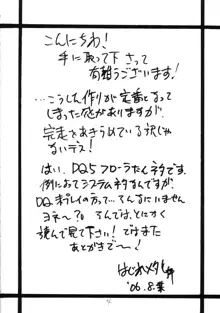 こんにちわ!
手に取って下さって
有難うございます!
…こうした作りが定番となって
しまった感がありますが、
完走をあきらめている訳じゃ
ないデス!
はい、DQ5フローラたんネタです。
例によってシステムネタなんですが、
DQ未プレイの方って…そんなにいません
ヨネ〜?ではとにかく
読んで見て下さい!ではまた
あとがきで〜!
はじめメタル
'06.8.